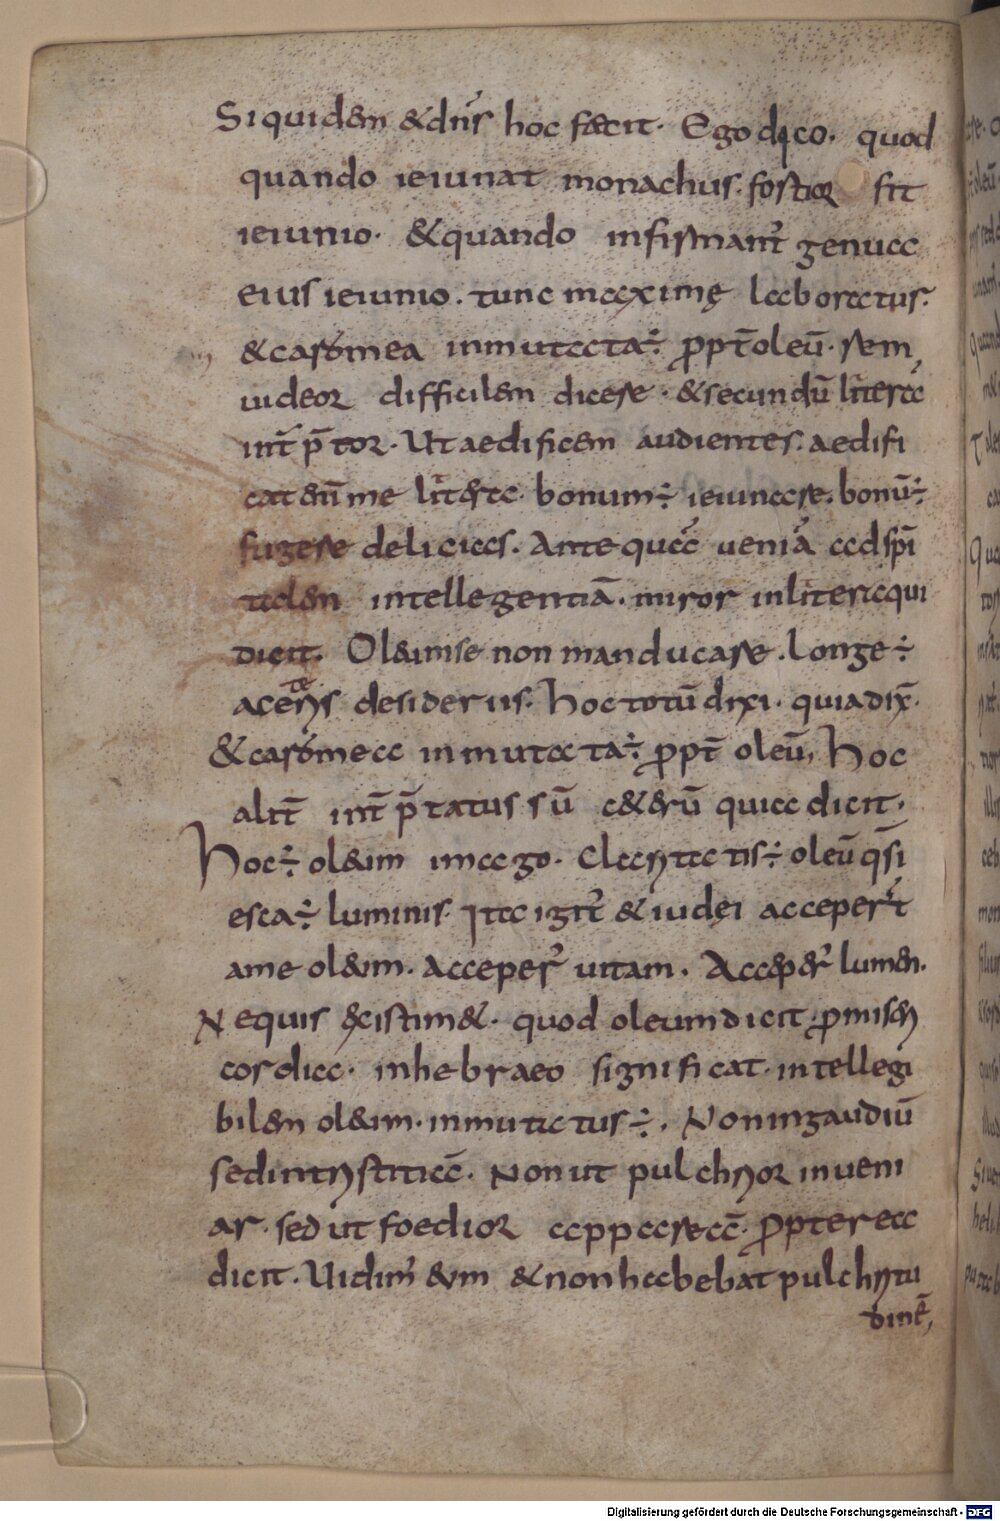 Siquidem & dn̄s hoc facit. Ego dico. quod
quando ieiunat monachus. fortior fit
ieiunio. & quando infirmant̄ genua
eius ieiunio. tunc maxime laboratus.
& caro mea inmutata ÷ ꝓpt̄ oleū. rem
uideor difficilem dicere. & secundū litera
int̄p̄tor. Ut aedificem audientes. aedifi
cat enī me litera. bonum ÷ ieiunare. bonū ÷
fugere delicias. Ante quā ueniā ad sp̄i
talem intellegentiā. miror in litera qui
dicit. Oleum se non manducare. Longe ÷
a ceteris desideriis. Hoc totū dixi. quia dix̄.
& caro mea inmutata ÷ ꝓpt̄ oleū, Hoc
alit̄ int̄p̄tatus sū ceterū quia dicit.
Hoc ÷ oleum imago. Claritatis ÷ oleū q̄si
esca ÷ luminis. Ita igit̄ & iudei acceper̄t
a me oleum. Acceper̄ uitam. Acceper̄ lumen.
Nequis existimet. quod oleum dicit. ꝓ misericordia
cordia. in hebraeo significat. intellegi
bilem oleum. inmutatus ÷. Non in gaudiū
sed in tristitiā. Non ut pulchrior inueni
ar. sed ut foedior appareā. Ꝓpterea
dicit. Uidim̄ eum & non habebat pulchritu
dinē,
Digitalisierung gefördert durch die Deutsche Forschungsgemeinschaft - DFG